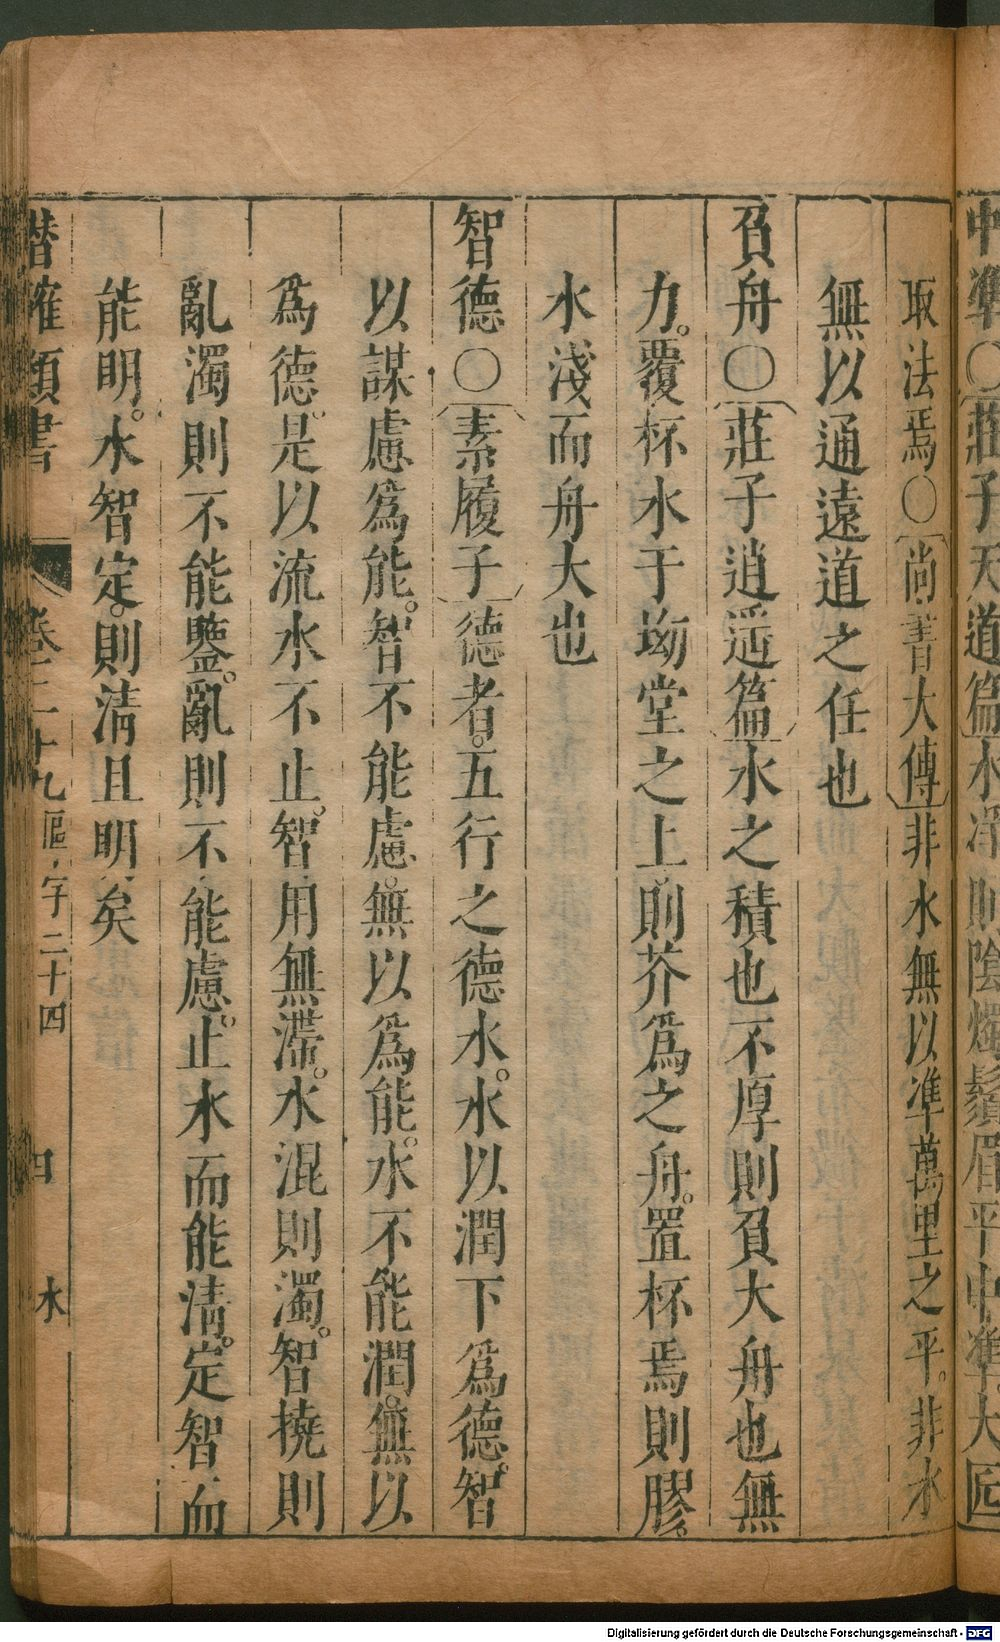 中準〇莊子天道篇水淨則隂燭鬚眉平中準大匠
取法焉〇尚書大傳非水無以準萬里之平。非水
無以通遠道之任也
負舟〇莊子逍遥篇水之積也不厚則負大舟也無
力。覆杯水于坳堂之上則芥爲之舟。置杯焉則膠。
水淺而舟大也
智德〇素履子德者。五行之德水。水以潤下爲德。智
以謀慮爲能。智不能慮。無以爲能。水不能潤。無以
爲德。是以流水不止。智用無滯。水混則濁。智撓則
亂濁則不能鑒。亂則不能慮。止水而能淸。定智而
能明。水智定。則淸且明矣
潛確類書 卷二十九 區宇二十四 四 水
Digitalisierung gefördert durch die Deutsche Forschungsgemeinschaft - DFG